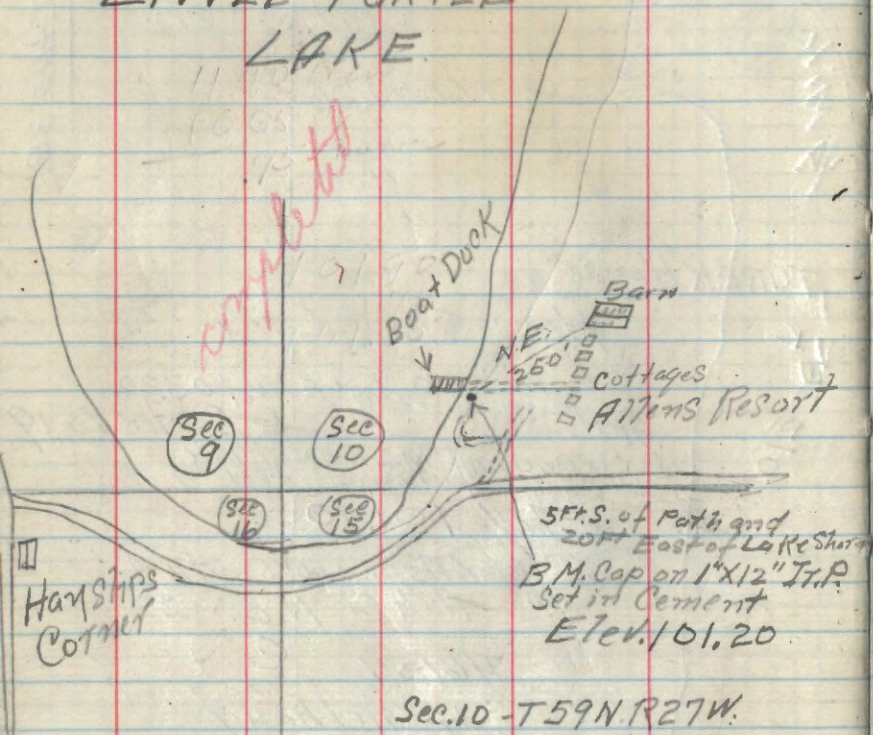 LITTLE TURTLE
LAKE
complete
Boat Dock
Barn
N.E.
250'
Cottages
Allens Resort
Sec
9
Sec
10
Sec
16
Sec
15
5 Ft. S. of Path and
20 Ft East of Lake Shore
B.M. Cap on 1"X12" Ir.P.
Set in Cement
Elev. 101.20
Corner
Sec.10 - T59N.R27W.